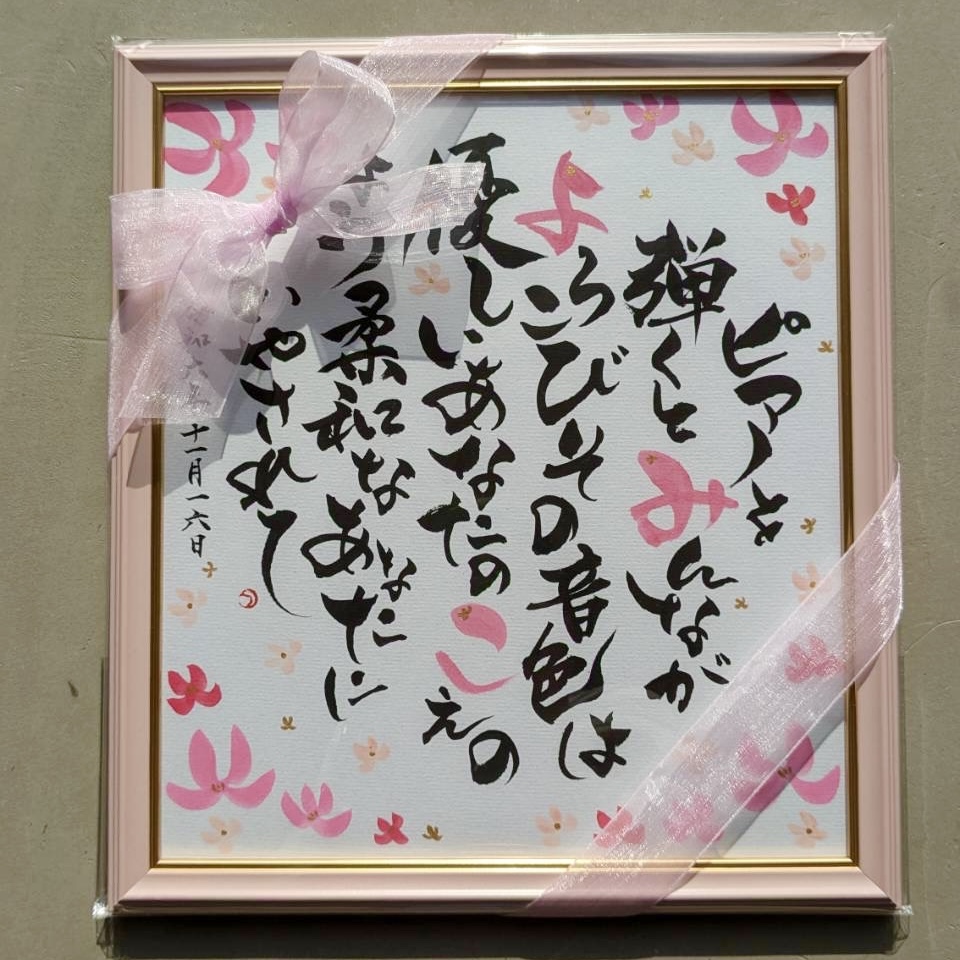 ピアノを
弾くとみんなが
よろこびその音色は
優しいあなたのこえの
柔和なあなたに
いやされて
令和六年十一月一六日